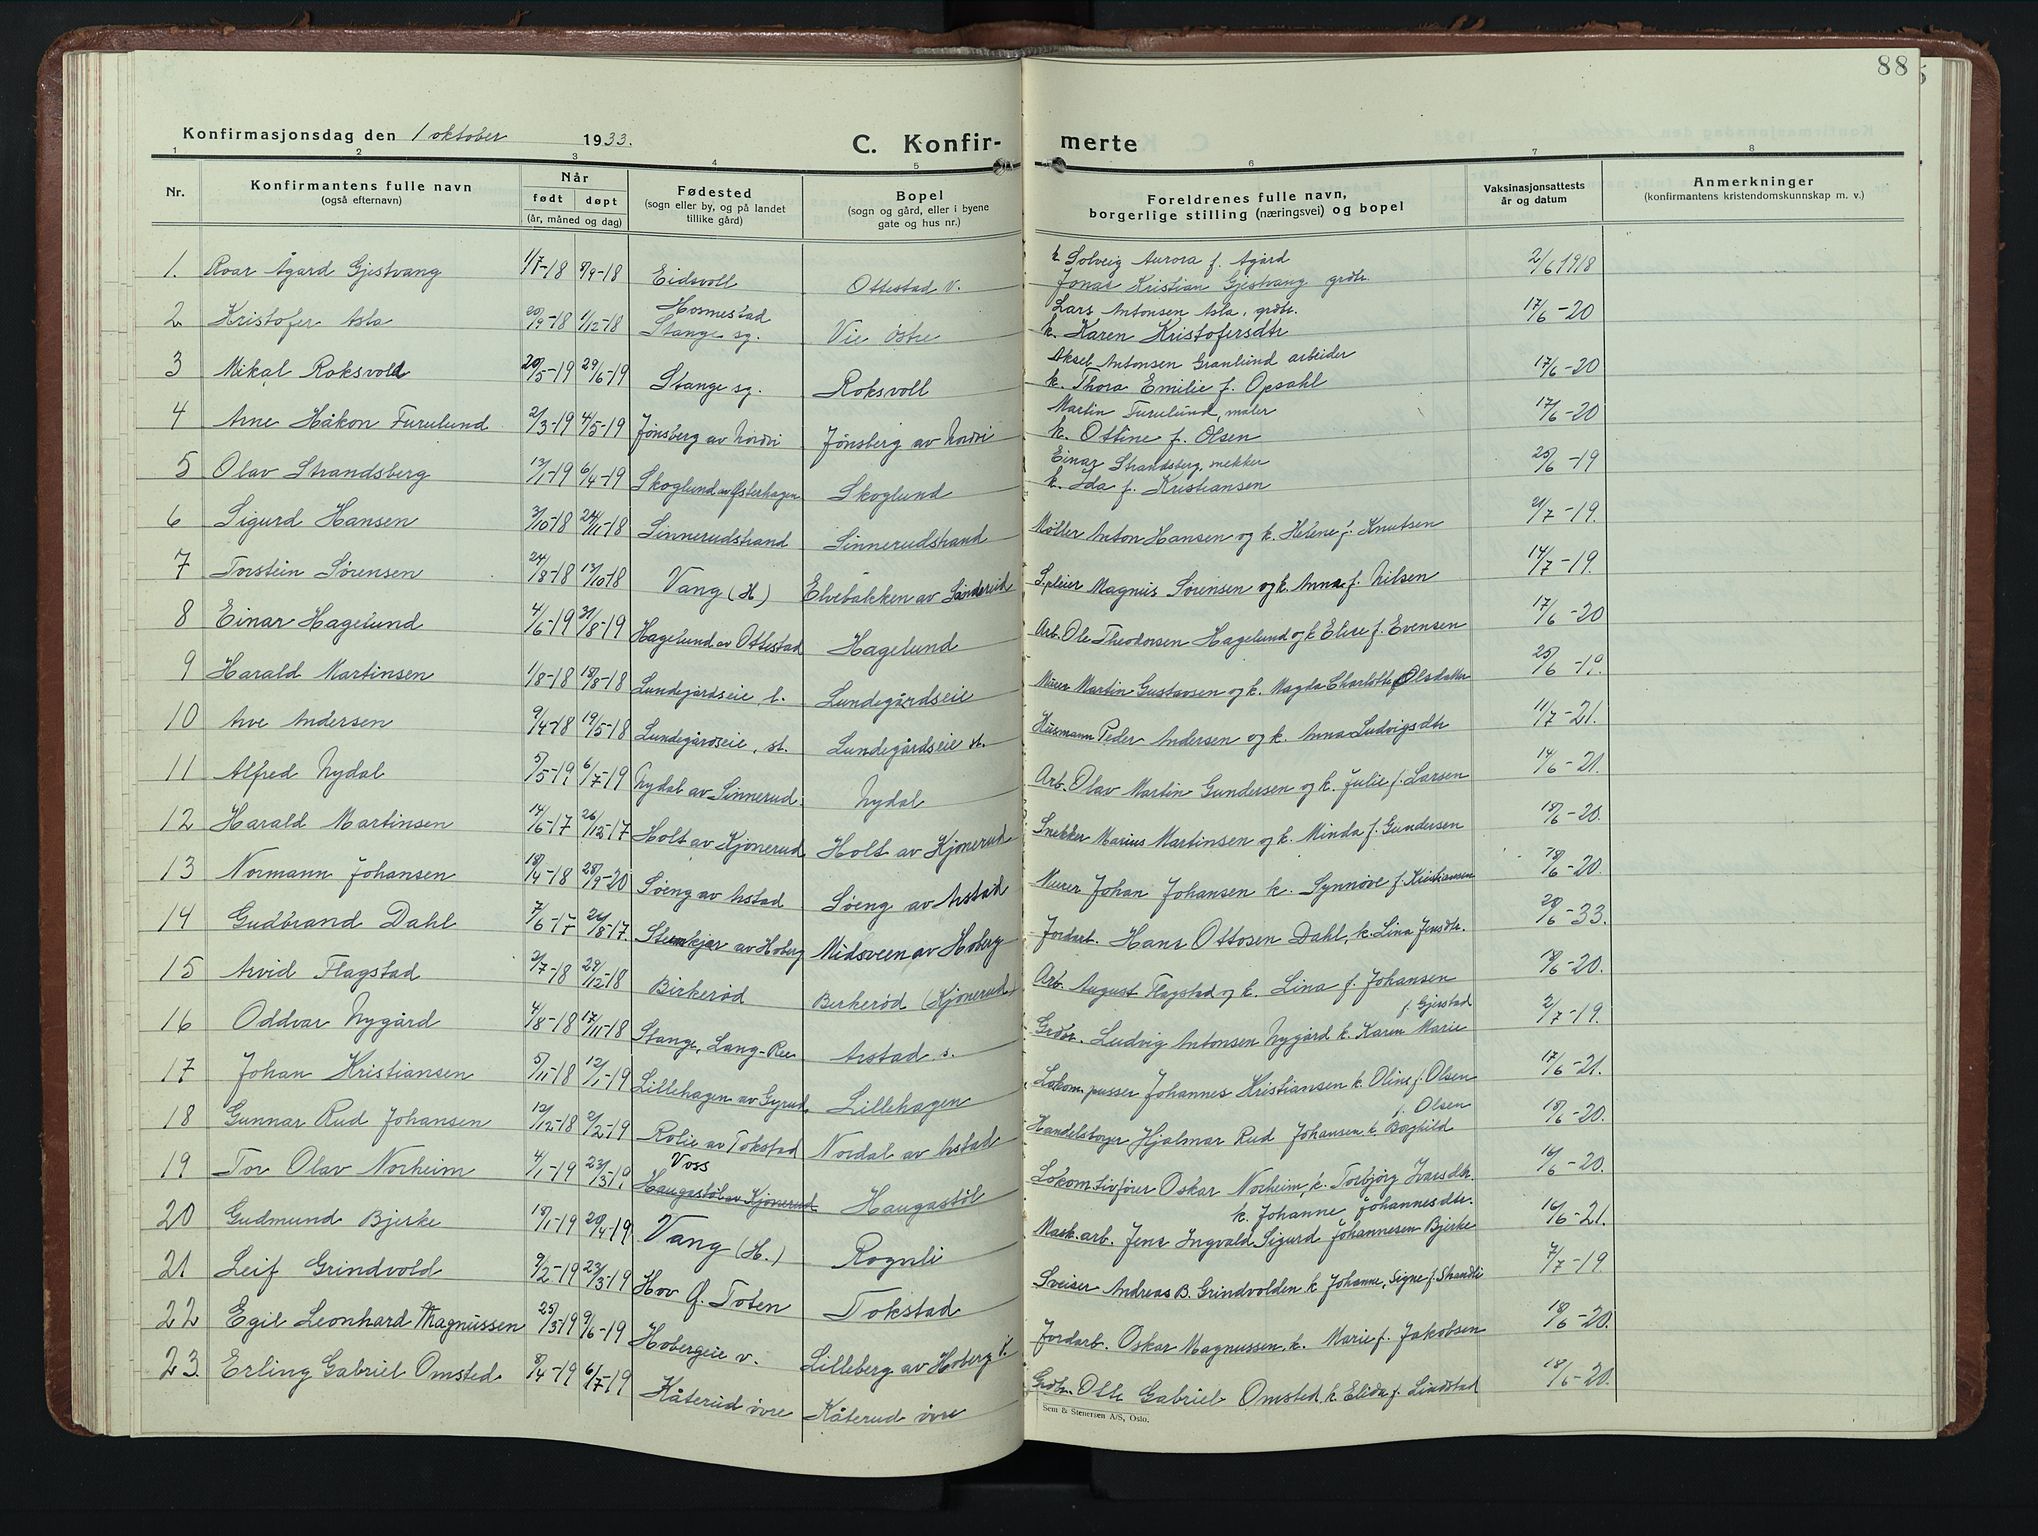 88
Konfirmasjonsdag den 1 oktober 1933.
C. Konfir- merte
1 2 3 4 5 6 7 8
Nr. Konfirmantens fulle navn (også efternavn) Når født døpt (år, måned og dag) Fødested (sogn eller by, og på landet tillike gård) Bopel (sogn og gård, eller i byene gate og hus nr.) Foreldrenes fulle navn, borgerlige stilling (næringsvei) og bopel Vaksinasjonsattests år og datum Anmerkninger (konfirmantens kristendomskunnskap m. v.)
1. Roar Ågard Gjestvang 1/7-18 8/9-18 Eidsvoll Ottestad v. k. Solveig Aurora f. Agård Jonas Kristian Gjestvang grdbr. 2/6 1918
2 Kristofer Asla 20/9-18 1/12-18 Hosmestad Stange sg. Vie østre Lars Antonsen Asla, grdbr. k. Karen Kristofersdtr 17/6-20
3 Mikal Roksvold 20/5-19 29/6-19 Stange sg. Roksvoll Aksel Antonsen Granlund arbeider k. Thora Emilie f. Opsahl 17/6-20
4 Arne Håkon Furulund 21/3-19 4/5-19 Jønsberg av Nordvi Jønsberg av Nordvi Martin Furulund, maler k. Ottine f. Olsen 17/6-20
5 Olav Strandsberg 13/1-19 6/4-19 Skoglund av Østerhagen Skoglund Einar Strandsberg, snekker k. Ida f. Kristiansen 25/6-19
6 Sigurd Hansen 3/10-18 24/11-18 Sinnerudstrand Sinnerudstrand Møller Anton Hansen og k. Helene f. Knutsen 21/7-19.
7 Torstein Sørensen 24/8-18 13/10-18 Vang (H) Elvebakken av Sandereid Spleier Magnus Sørensen og k. Anna f. Nilsen 14/7-19.
8 Einar Hagelund 4/6-19 31/8-19 Hagelund av Ottestad Hagelund Arb. Ole Theodorsen Hagelund og k Elise f. Evensen 17/6-20
9 Harald Martinsen 1/8-18 18/8-18 Lundegårdseie l. Lundegårdseie Murer Martin Gustavsen og k. Magda Charlotte Olsdatter 25/6-19.
10 Arve Andersen 9/4-18 19/5-18 Lundegårdseie, st. Lundegårdseie st. Husmann Peder Andersen og k. Anna Ludvigsdtr 11/7-21.
11 Alfred Nydal 5/5-19 6/7-19 Nydal av Sinnerud. Nydal Arb. Olav Martin Gundersen og k. Julie f. Larsen 14/6-21.
12 Harald Martinsen 14/6-17 26/12-17 Holt av Kjonerud Holt av Kjonerud Snekker Marius Martinsen og k. Minda f. Gundersen 18/6-20.
13 Normann Johansen 18/4-18 28/9-20 Søeng av Arstad Søeng av Arstad Murer Johan Johansen k. Synnøve f. Kristiansen 18/6-20.
14 Gudbrand Dahl 7/6-17 26/8-17. Steinkjer av Hoberg Midsveen av Hoberg Jordarb. Hans Ottosen Dahl, k. Lina Jensdtr. 20/6-33.
15 Arvid Flagstad 2/7-18 29/12-18 Birkerød Birkerød (Kjonerud) Arb. August Flagstad og k. Lina f. Johansen 18/6-20.
16 Oddvar Nygård 4/8-18 17/11-18 Stange, Lang-Ree Arstad s. Grdbr. Ludvig Antonsen Nygård k. Karen Marie f. Gjerstad 2/7-19.
17 Johan Kristiansen 5/11-18 12/1-19 Lillehagen av Gyrud. Lillehagen Lokom. pusser Johannes Kristiansen k. Oline f. Olsen 17/6-21.
18 Gunnar Rud Johansen 12/12-18 2/2-19 Rolie av Tokstad Nordal av Arstad Handelsborger Hjalmar Rud Johansen. k. Boghild f. Olsen 18/6-20.
19 Tor Olav Norheim 4/1-19 23/3-19. Voss Haugastøl av Kjonerud Haugastøl Lokomtivfører Oskar Norheim, k. Torbjørg Ivarsdtr. 16/6-20.
20 Gudmund Bjerke 18/1-19 20/4-19 Vang (H.) Rognli k. Johanne Johannesdtr. Mask. arb. Jens Ingvald Sigurd Johannesen Bjerke 16/6-21.
21 Leif Grindvold 9/2-19 23/3-19 Hov Ø. Toten Tokstad Sveiser Andreas B. Grindvolden k. Johanne, Signe f. Strandli 7/7-19.
22 Egil Leonhard Magnussen 25/3-19 9/6-19 Hobergeie v. Lilleberg av Hoberg v. Jordarb. Oskar Magnussen. k. Marie f. Jakobsen 18/6-20.
23. Erling Gabriel Omsted 8/4-19 6/7-19 Kåterud øvre Kåterud øvre Grdbr. Otto Gabriel Omsted k. Elida f. Lindstad 18/6-20.
Sem & Stenersen A/S, Oslo.